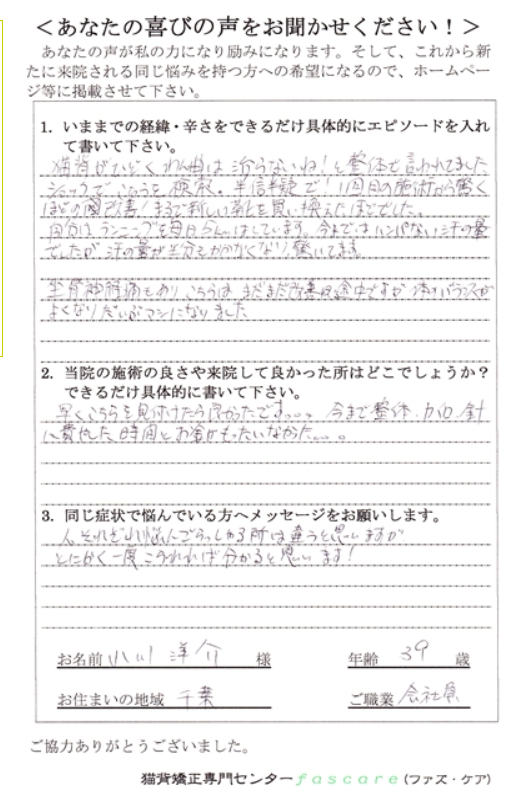 ＜あなたの喜びの声をお聞かせください！＞
あなたの声が私の力になり励みになります。そして、これから新
たに来院される同じ悩みを持つ方への希望になるので、ホームペー
ジ等に掲載させて下さい。
1. いままでの経緯・辛さをできるだけ具体的にエピソードを入れ
て書いて下さい。
猫背がひどくわん曲は治らないね！と整体で言われてました
ショックでこちらを検索。半信半疑で！1回目の施術から驚く
ほどの改善！まるで新しい靴を買い換えたほどでした。
自分はランニングを毎日らんはしています。今までは ハンパない汗の量
でしたが 汗の量が半分もかかなくなり 驚いてます。
坐骨神経痛もあり、こちらは まだまだ改善の途中ですが 体のバランスが
よくなり だいぶマシになりました
2. 当院の施術の良さや来院して良かった所はどこでしょうか？
できるだけ具体的に書いて下さい。
早くこちらを見付けたら良かったです。。。今まで整体、カイロ、針
に費やした時間とお金がもったいなかった。。。
3. 同じ症状で悩んでいる方へメッセージをお願いします。
人それぞれ悩んでらっしゃる所は違うと思いますが
とにかく一度こられれば分かると思います！
お名前 小川 洋介 様 年齢 39 歳
お住まいの地域 千葉 ご職業 会社員
ご協力ありがとうございました。
猫背矯正専門センターfascare（ファス・ケア）